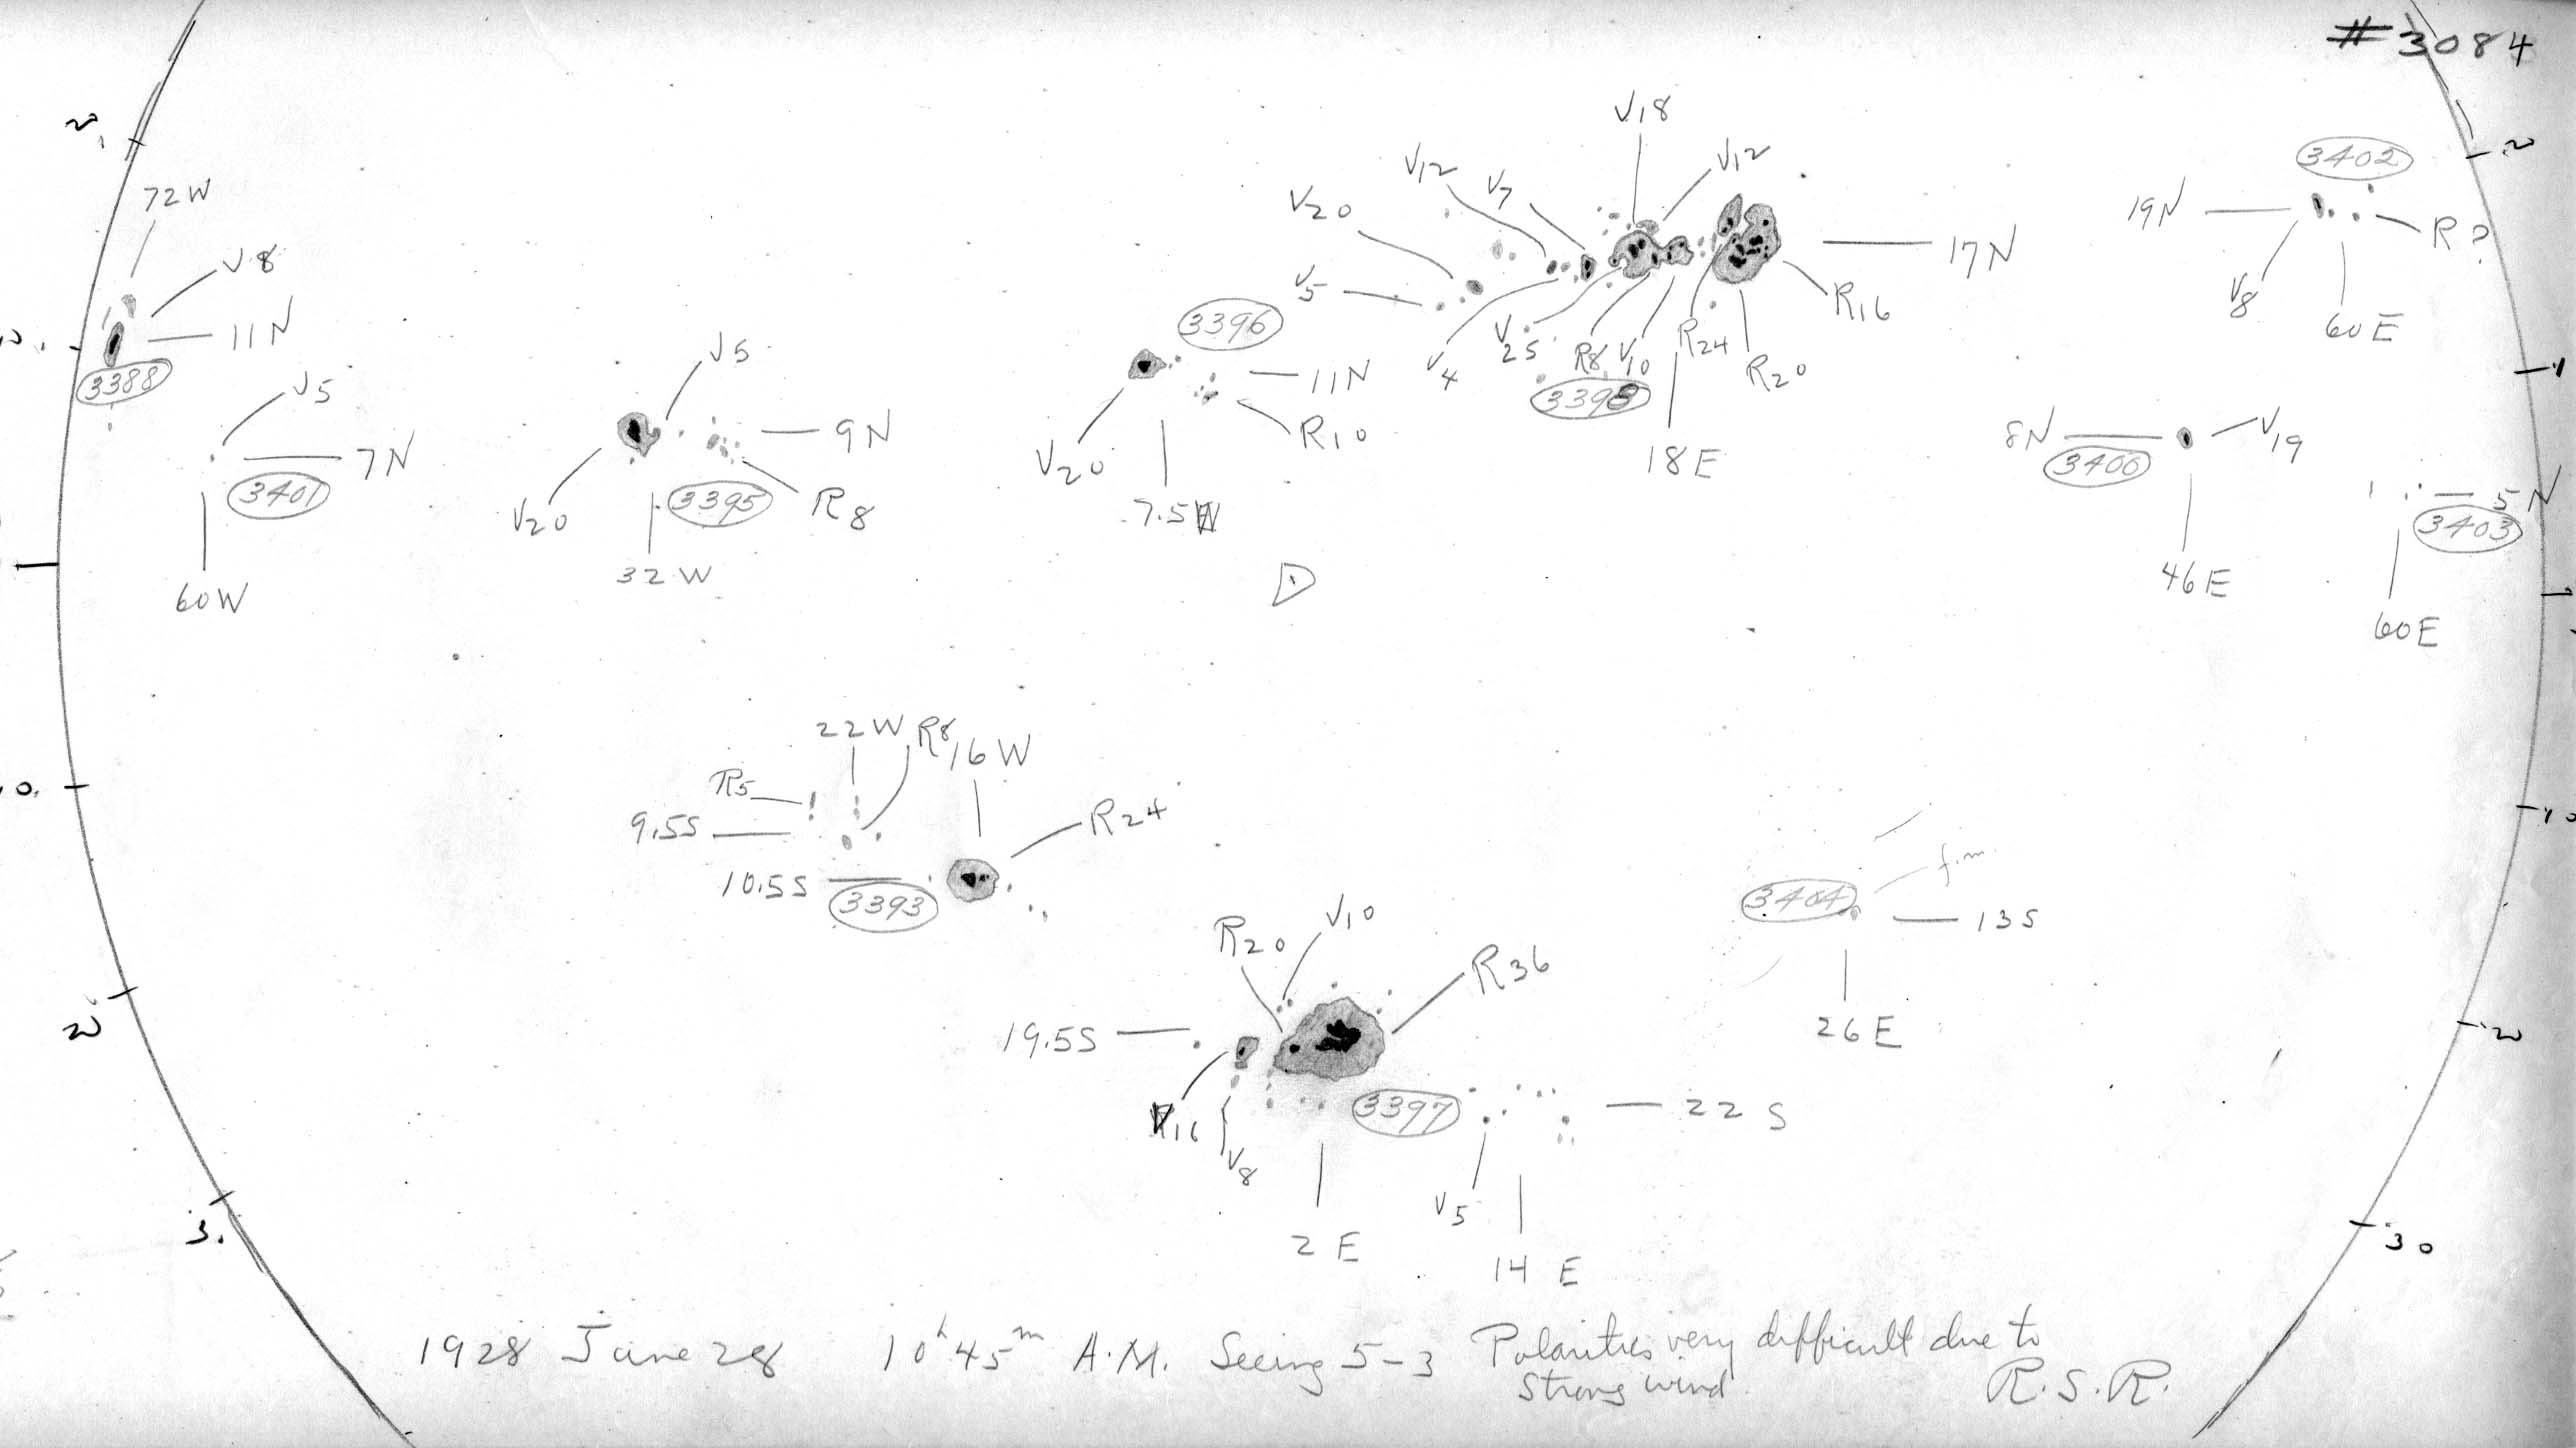 #3084
20
20
3402
72W
V8
11N
3388
10
V5
7N
3401
60W
V5
9N
V20
3395
R8
32W
3396
11N
V20
R10
7.5W
V18
V12
V7
V12
V20
V5
17N
R16
V4
V25
R8
V10
R24
R20
3398
18E
19N
R?
V8
60E
8N
3400
V19
46E
5N
3403
60E
D
22W
R8
16W
R5
9.5S
R24
10.5S
3393
10
R20
V10
R36
19.5S
R16
V8
3397
22 S
V5
2 E
14 E
f.m.
3404
13S
26E
20
20
30
1928 June 28 10h45m A.M. Seeing 5-3 Polarities very difficult due to
strong wind.
R.S.R.